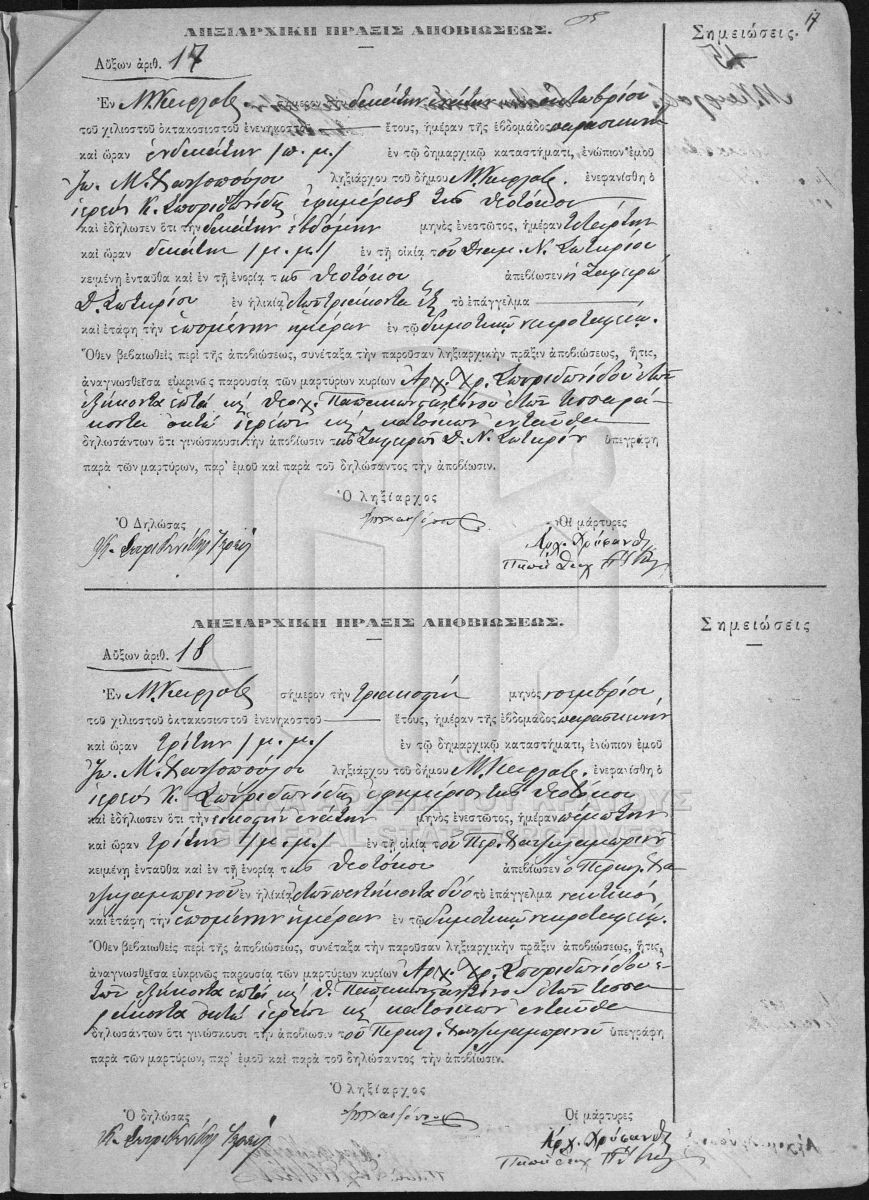 17
ΛΗΞΙΑΡΧΙΚΗ ΠΡΑΞΙΣ ΑΠΟΒΙΩΣΕΩΣ.
Σημειώσεις.
Αὔξων ἀριθ. 17
Ἐν σήμερον τὴν δεκάτην ἐνάτην ὀκτωβρίου
τοῦ χιλιοστοῦ ὀκτακοσιοστοῦ ἐνενηκοστοῦ ἔτους, ἡμέραν τῆς ἑβδομάδος παρασκευὴν
καὶ ὥραν ἑνδεκάτην /π. μ./ ἐν τῷ δημαρχικῷ καταστήματι, ἐνώπιον ἐμοῦ
Ἰω. Μ. ληξιάρχου τοῦ δήμου ἐνεφανίσθη ὁ
ἱερεὺς Κ. Σπυριδωνίδης ἐφημέριος τῆς Θεοτόκου
καὶ ἐδήλωσεν ὅτι τὴν δεκάτην ἑβδόμην μηνὸς ἐνεστῶτος, ἡμέραν τετάρτην
καὶ ὥραν δεκάτην /μ. μ./ ἐν τῇ οἰκίᾳ τοῦ Ν. Σωτηρίου
κειμένῃ ἐνταῦθα καὶ ἐν τῇ ἐνορίᾳ τῆς Θεοτόκου ἀπεβίωσεν ἡ
Δ. Σωτηρίου ἐν ἡλικίᾳ ἐτῶν τριάκοντα ἓξ τὸ ἐπάγγελμα
καὶ ἐτάφη τὴν ἑπομένην ἡμέραν ἐν τῷ δημοτικῷ νεκροταφείῳ.
Ὅθεν βεβαιωθεὶς περὶ τῆς ἀποβιώσεως, συνέταξα τὴν παροῦσαν ληξιαρχικὴν πρᾶξιν ἀποβιώσεως, ἥτις,
ἀναγνωσθεῖσα εὐκρινῶς παρουσίᾳ τῶν μαρτύρων κυρίων Ἀρχ. Χρ. Σπυριδωνίδου ἐτῶν
ἑξήκοντα ἑπτὰ κ Παπακωνσταντίνου ἐτῶν τεσσαρά-
κοντα ὀκτὼ ἱερέων κ κατοίκων ἐνταῦθα
δηλωσάντων ὅτι γινώσκουσι τὴν ἀποβίωσιν τῆς Δ. Ν. Σωτηρίου ὑπεγράφη
παρὰ τῶν μαρτύρων, παρ' ἐμοῦ καὶ παρὰ τοῦ δηλώσαντος τὴν ἀποβίωσιν.
Ὁ ληξίαρχος
Ὁ Δηλώσας
Οἱ μάρτυρες
Κ. Σπυριδωνίδης Ἱερεύς
Ἀρχ. Χρύσανθ
ΛΗΞΙΑΡΧΙΚΗ ΠΡΑΞΙΣ ΑΠΟΒΙΩΣΕΩΣ.
Σημειώσεις
Αὔξων ἀριθ. 18
Ἐν σήμερον τὴν τριακοστὴν μηνὸς νοεμβρίου
τοῦ χιλιοστοῦ ὀκτακοσιοστοῦ ἐνενηκοστοῦ ἔτους, ἡμέραν τῆς ἑβδομάδος παρασκευὴν
καὶ ὥραν τρίτην /μ. μ./ ἐν τῷ δημαρχικῷ καταστήματι, ἐνώπιον ἐμοῦ
Ἰω. Μ. ληξιάρχου τοῦ δήμου ἐνεφανίσθη ὁ
ἱερεὺς Κ. Σπυριδωνίδης ἐφημέριος τῆς Θεοτόκου
καὶ ἐδήλωσεν ὅτι τὴν εἰκοστὴν ἐνάτην μηνὸς ἐνεστῶτος, ἡμέραν πέμπτην
καὶ ὥραν τρίτην /μ. μ./ ἐν τῇ οἰκίᾳ τοῦ Περ.
κειμένῃ ἐνταῦθα καὶ ἐν τῇ ἐνορίᾳ τῆς Θεοτόκου ἀπεβίωσεν ὁ Περικλ.
ἐν ἡλικίᾳ ἐτῶν πεντήκοντα δύο τὸ ἐπάγγελμα ναυτικὸς
καὶ ἐτάφη τὴν ἑπομένην ἡμέραν ἐν τῷ δημοτικῷ νεκροταφείῳ.
Ὅθεν βεβαιωθεὶς περὶ τῆς ἀποβιώσεως, συνέταξα τὴν παροῦσαν ληξιαρχικὴν πρᾶξιν ἀποβιώσεως, ἥτις,
ἀναγνωσθεῖσα εὐκρινῶς παρουσίᾳ τῶν μαρτύρων κυρίων Ἀρχ. Χρ. Σπυριδωνίδου ἐ-
τῶν ἑξήκοντα ἑπτὰ κ Θ. Παπακωνσταντίνου ἐτῶν τεσσα-
ράκοντα ὀκτὼ ἱερέων κ κατοίκων ἐνταῦθα
δηλωσάντων ὅτι γινώσκουσι τὴν ἀποβίωσιν τοῦ Περικλ. ὑπεγράφη
παρὰ τῶν μαρτύρων, παρ' ἐμοῦ καὶ παρὰ τοῦ δηλώσαντος τὴν ἀποβίωσιν.
Ὁ ληξίαρχος
Ὁ δηλώσας
Οἱ μάρτυρες
Κ. Σπυριδωνίδης Ἱερεύς
Ἀρχ. Χρύσανθ
ΓΕΝΙΚΑ ΑΡΧΕΙΑ ΤΟΥ ΚΡΑΤΟΥΣ
GENERAL STATE ARCHIVES